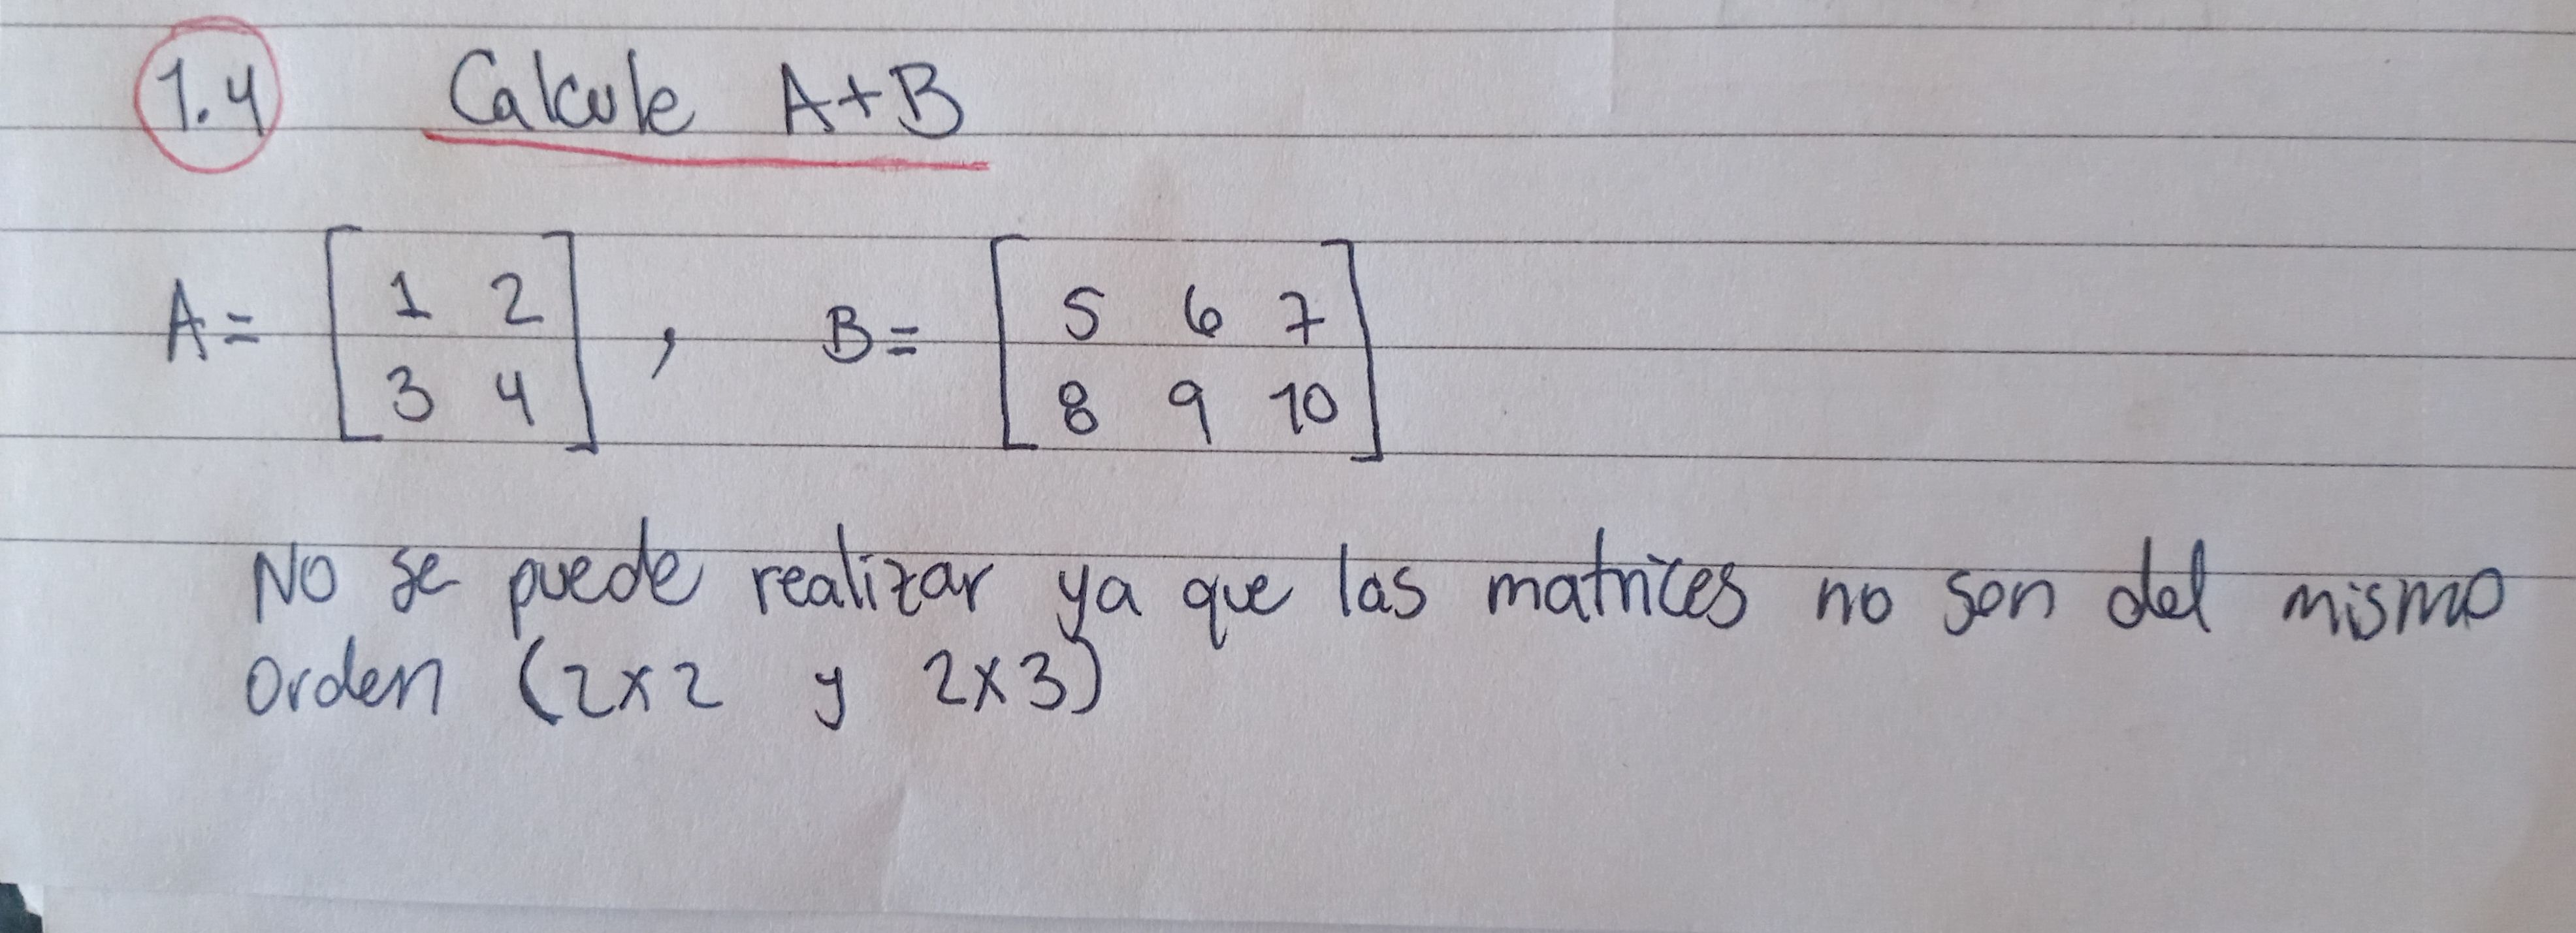 1.4 Calcule A+B
A= [ 1 2 , B= [ 5 6 7
3 4 ] 8 9 10 ]
No se puede realizar ya que las matrices no son del mismo
orden (2x2 y 2x3)